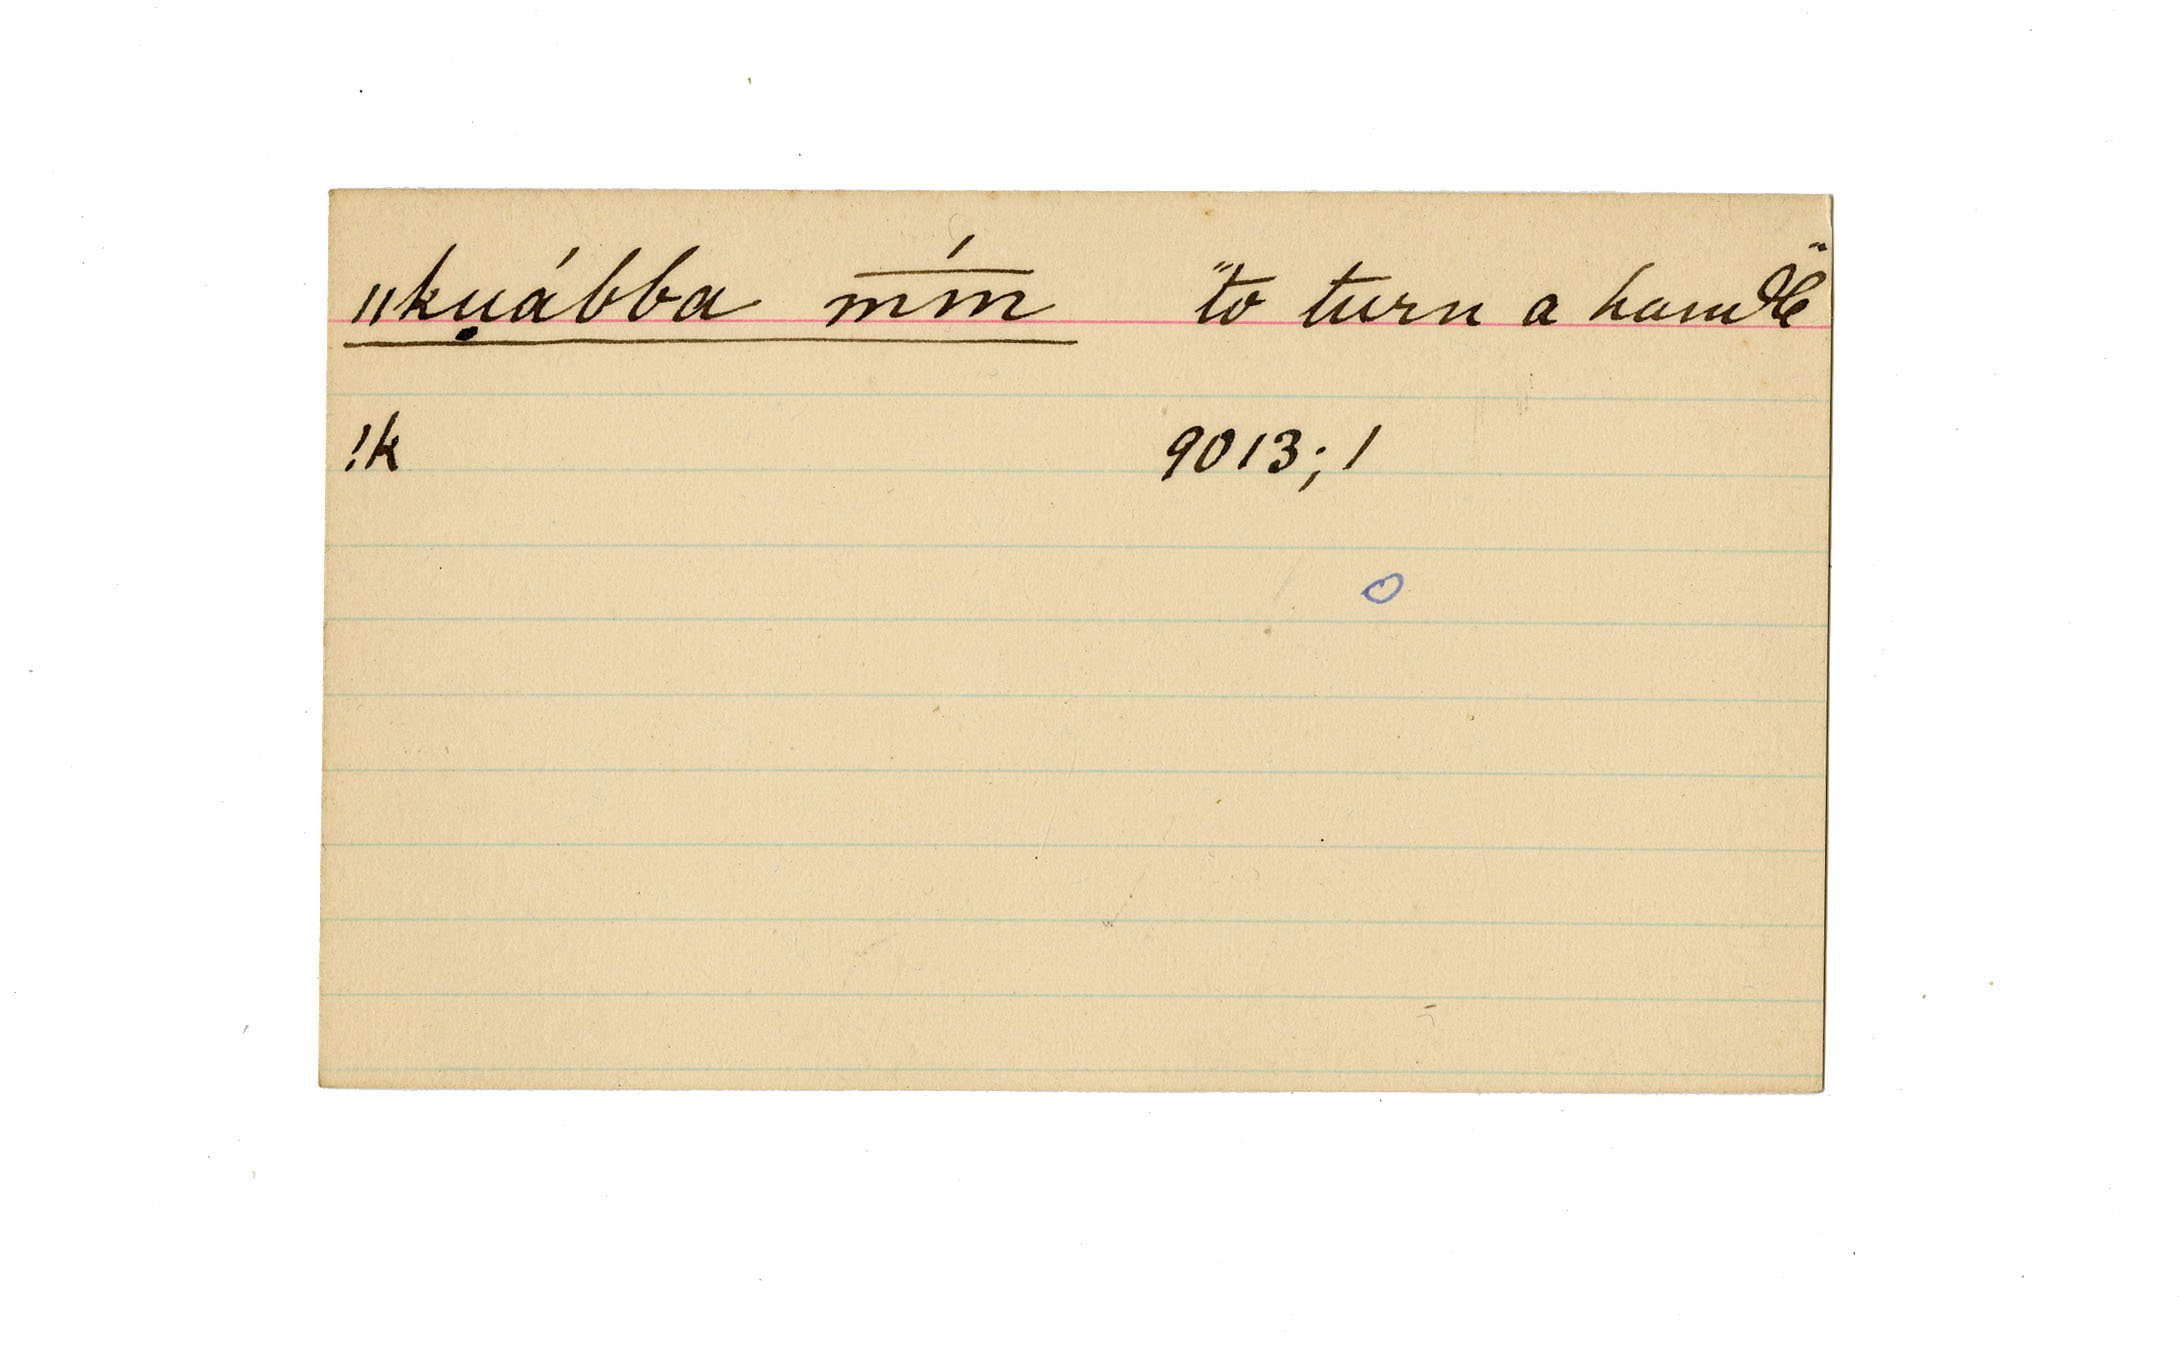 ǁkụábba m̅m̅́ "to turn a handle"
!k 9013; 1